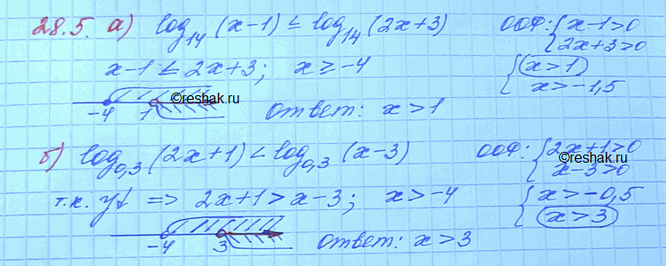 28.5. а) log₁₄(x-1) ≤ log₁₄(2x+3) ООФ: { x-1>0
2x+3>0
x-1 ≤ 2x+3; x ≥ -4 { x>1
x>-1,5
©reshak.ru
-4 1 ответ: x>1
б) log₀,₃(2x+1) < log₀,₃(x-3) ООФ: { 2x+1>0
©reshak.ru
x-3>0
т.к. y↓ => 2x+1 > x-3; x>-4 { x>-0,5
x>3
-4 3 ответ: x>3